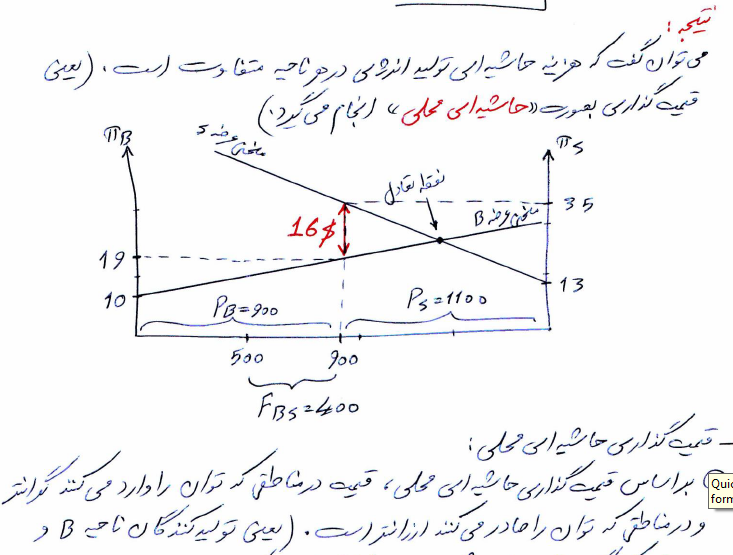 نتیجه :
می توان گفت که هزینه حاشیه ای تولید انرژی در هر ناحیه متفاوت است. (یعنی
قیمت گذاری بصورت "حاشیه ای محلی" انجام می گیرد.)
π_B
منحنی عرضه S
π_S
نقطه تعادل
35
منحنی عرضه B
16$
19
13
10
P_B=900
P_S=1100
500
900
F_BS=400
- قیمت گذاری حاشیه ای محلی :
براساس قیمت گذاری حاشیه ای محلی، قیمت در مناطقی که توان را وارد می کنند گرانتر
Quic
form
و در مناطقی که توان را صادر می کنند ارزانتر است. (یعنی تولیدکنندگان ناحیه B و